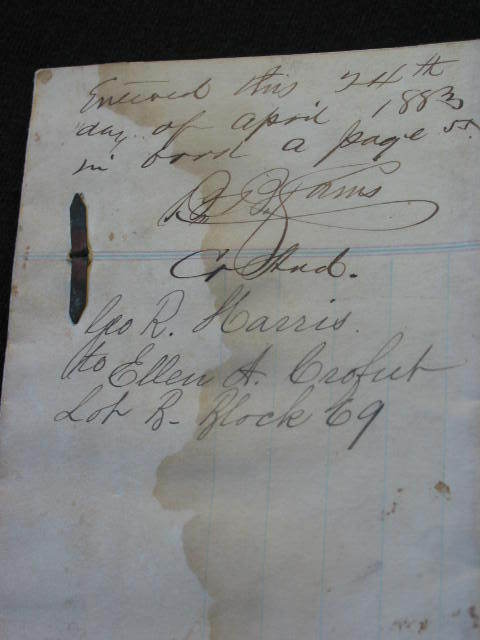 Entered this 24th
day of april 1883
in book a page 51
Co Aud.
Geo R. Harris.
to Ellen A. Crofut
Lot B- Block 69